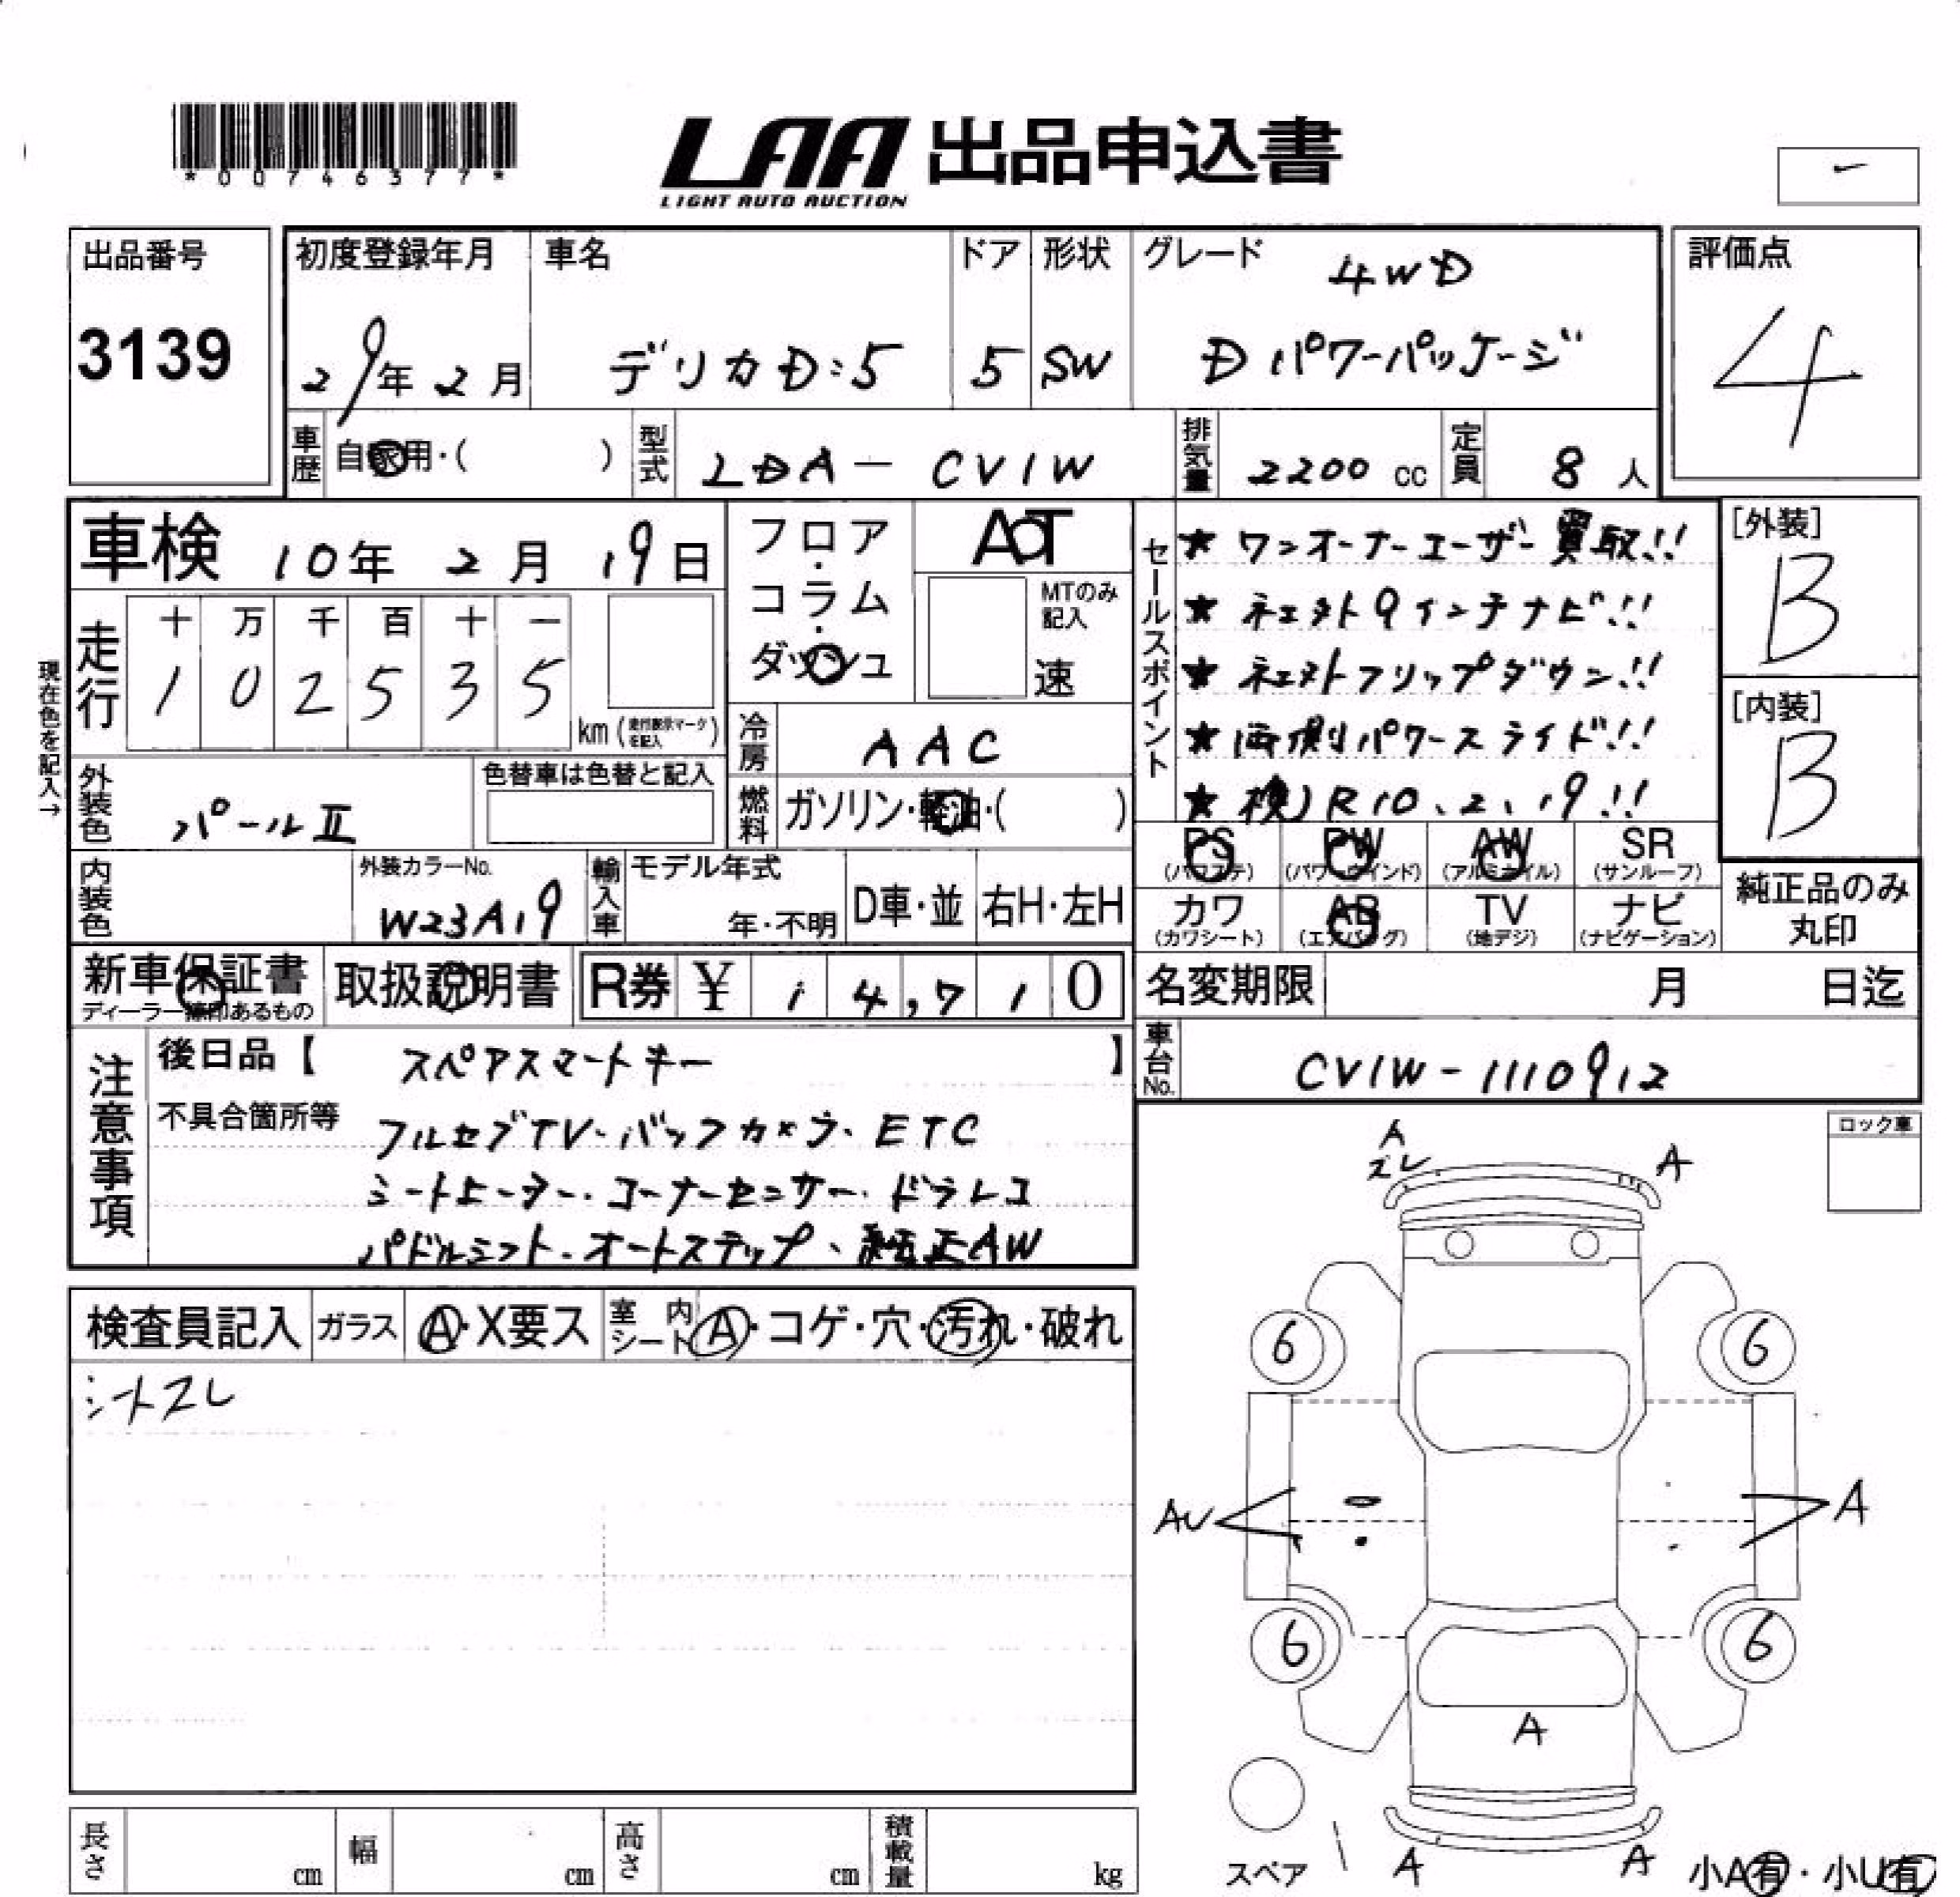 *00746377*
LAA 出品申込書
LIGHT AUTO AUCTION
出品番号
3139
初度登録年月
29年 2月
車名
デリカD:5
ドア
5
形状
SW
グレード 4WD
Dパワーパッケージ
評価点
4
車歴 自家用・( )
型式 LDA-CV1W
排気量 2200 cc
定員 8人
車検 10年 2月 19日
フロア・コラム・ダッシュ
AT
MTのみ記入
速
走行
十 万 千 百 十 一
1 0 2 5 3 5
km
現在色を記入→
外装色 パールII
色替車は色替と記入
冷房 AAC
燃料 ガソリン・軽油・( )
内装色
外装カラーNo.
W23A19
輸入車
モデル年式
年・不明
D車・並
右H・左H
セールスポイント
★ワンオーナーユーザー買取!!
★ネェクト9インチナビ!!
★ネェクトフリップダウン!!
★両側パワースライド!!
★検)R10.2.19!!
[外装]
B
[内装]
B
PS (パワステ)
PW (パワーウインド)
AW (アルミホイル)
SR (サンルーフ)
カワ (カワシート)
AB (エアバッグ)
TV (地デジ)
ナビ (ナビゲーション)
純正品のみ丸印
新車保証書
ディーラー簿印あるもの
取扱説明書
R券 ¥ 14,710
名変期限 月 日迄
車台No. CV1W-1110912
注意事項
後日品【 スペアスマートキー 】
不具合箇所等 フルセグTV・バックカメラ・ETC
シートヒーター・コーナーセンサー・ドラレコ
パドルシフト・オートステップ・純正AW
ロック車
検査員記入
ガラス A・X要ス
室内シート A・コゲ・穴・汚れ・破れ
シートスレ
A
スレ
A
6
6
AU
A
6
6
A
A
A
スペア
小A有・小U有
長さ cm
幅 cm
高さ cm
積載量 kg